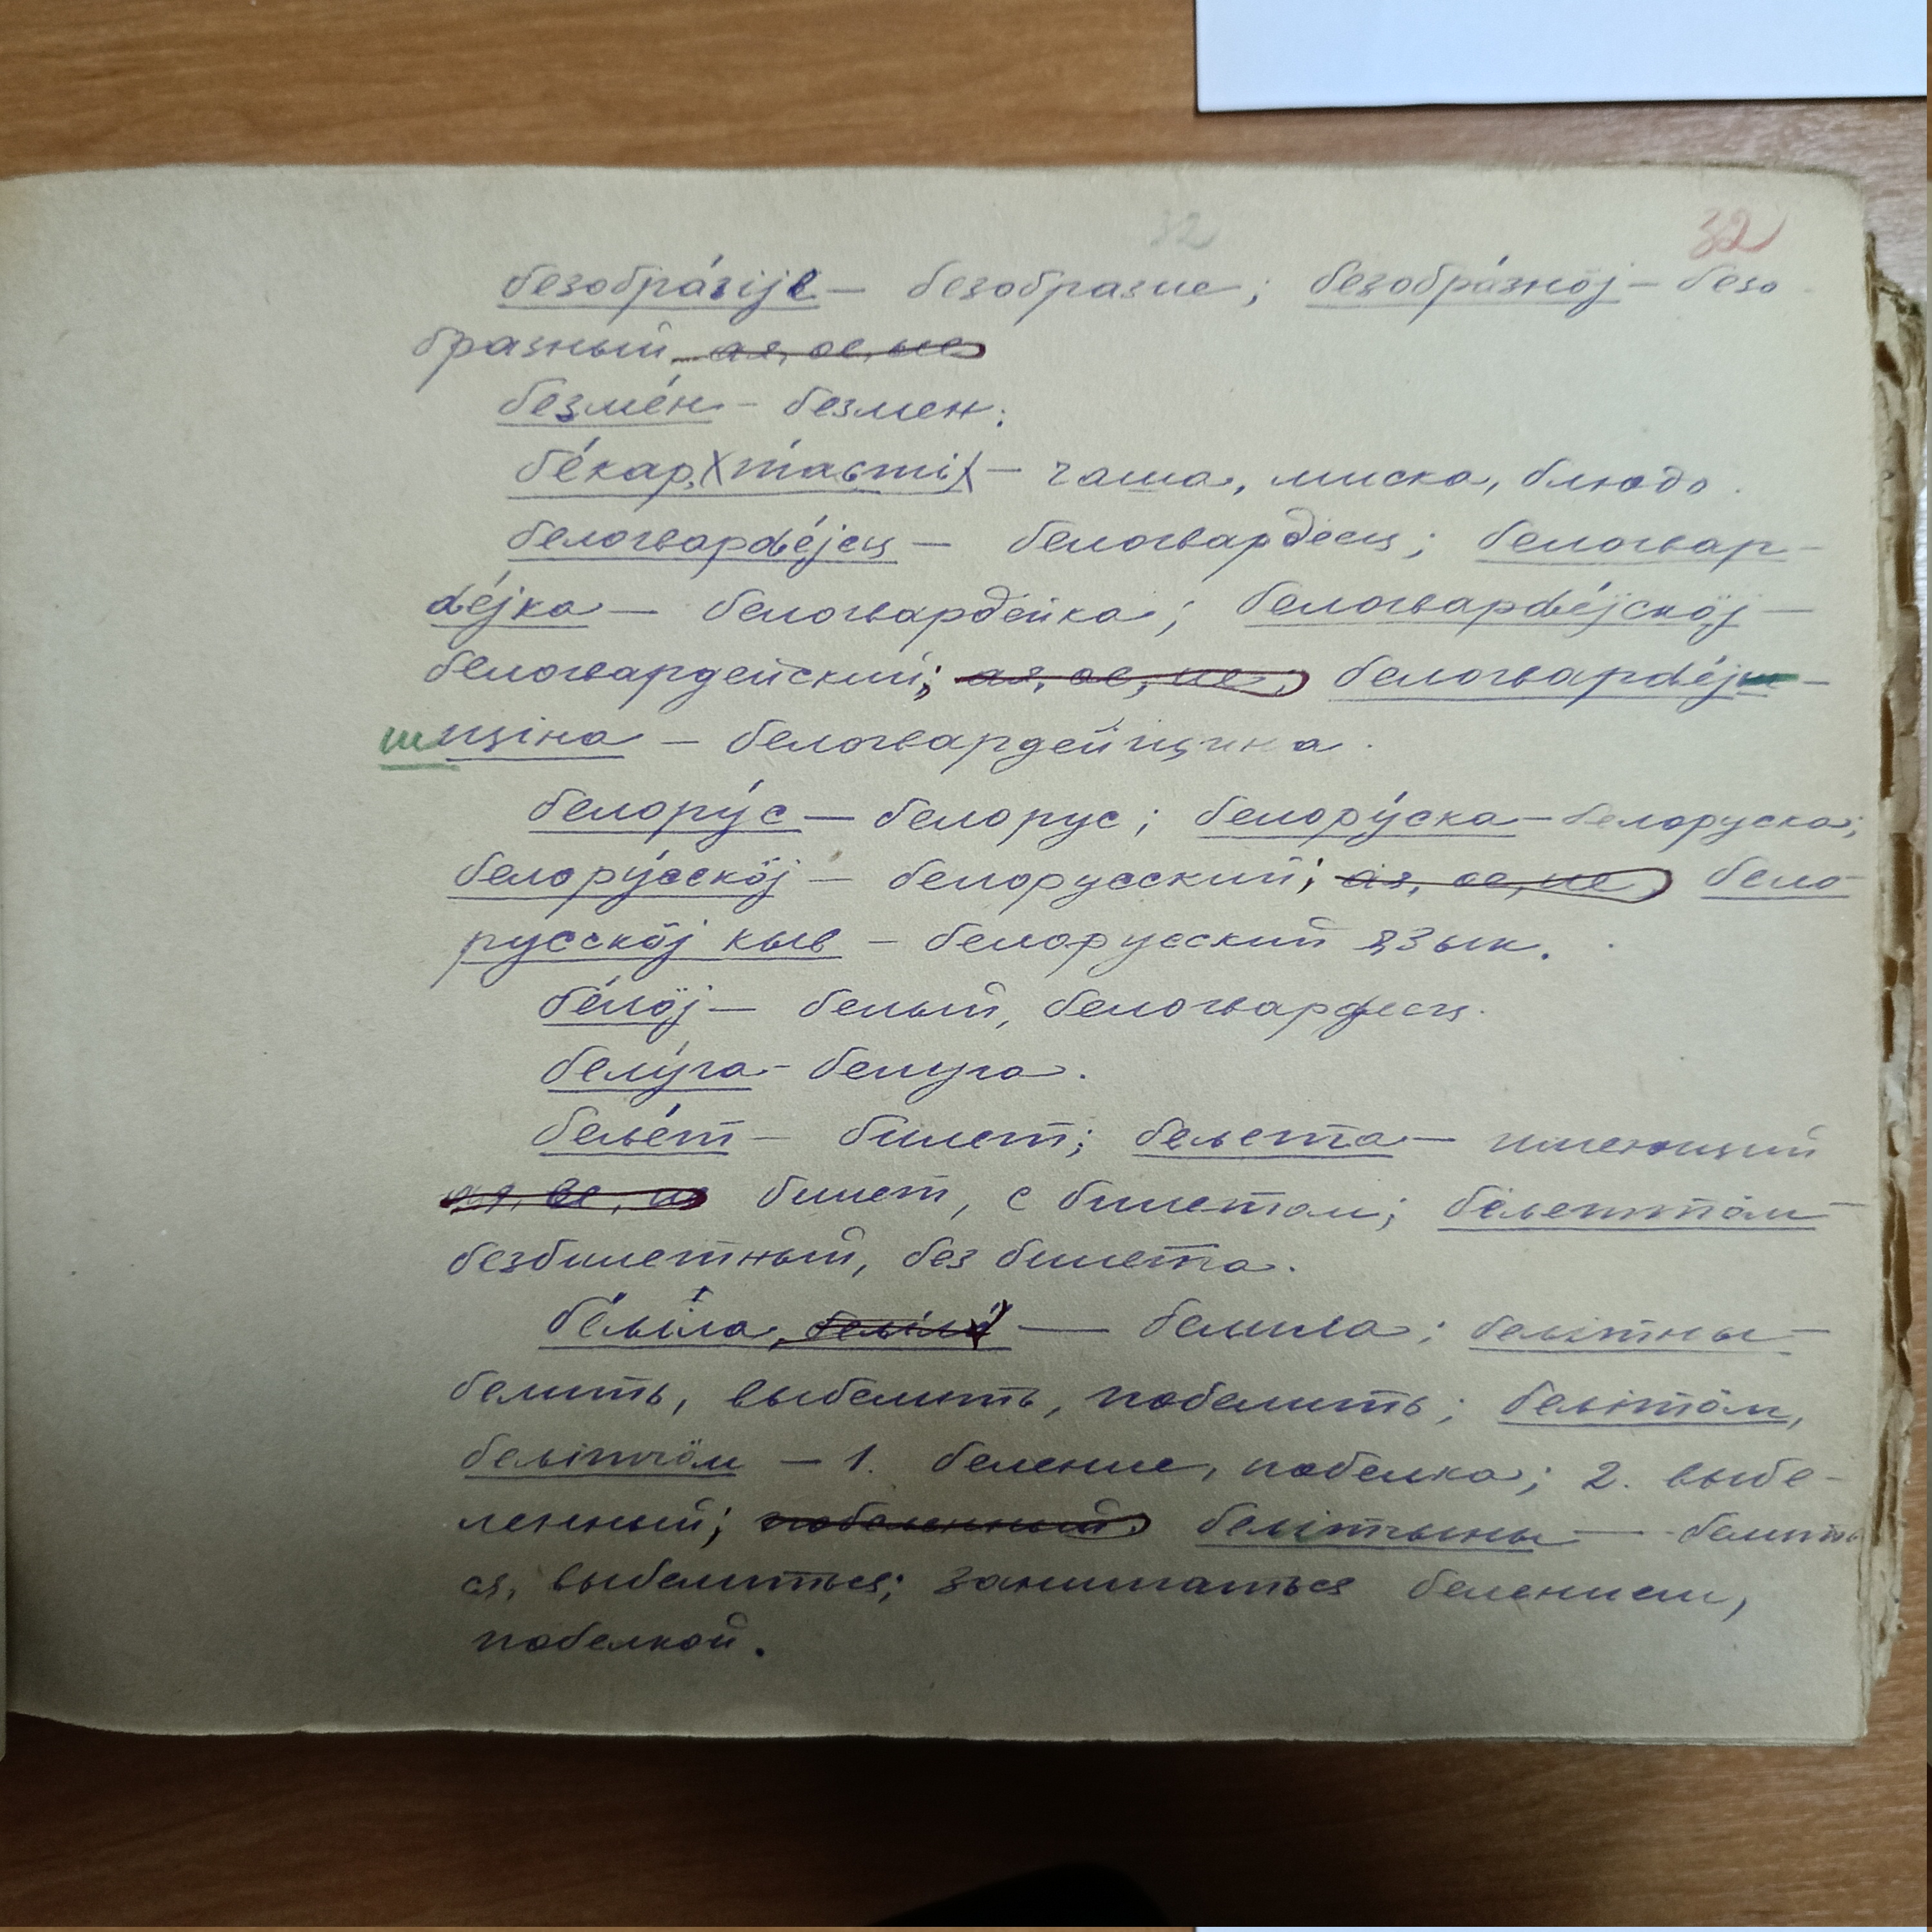 32 32
безобра́зіје — безобразие; безобра́знöј — безо-
бразный, ая, ое, ые
безме́н - безмен.
бе́кар, (та́сті) — чаша, миска, блюдо.
белогварԁе́јец — белогвардеец; белогвар-
ԁе́јка — белогвардейка; белогварԁе́јскöј —
белогвардейский; ая, ое, ие, белогварԁе́ј-
шщіна — белогвардейщина.
белору́с — белорус; белору́ска — белоруска;
белору́сскöј — белорусский; ая, ое, ие, бело-
русскöј кыв — белорусский язык.
бе́лöј — белый, белогвардеец.
белу́га - белуга.
беԉе́т — билет; беԉета — имеющий
ая, ее, ие билет, с билетом; беԉеттöм —
безбилетный, без билета.
бе́ԉіла, — белила; беԉітны —
белить, выбелить, побелить; беԉітöм,
беԉітчöм — 1. беление, побелка; 2. выбе-
ленный; побеленный. беԉітчыны — белить-
ся, выбелиться; заниматься белением,
побелкой.